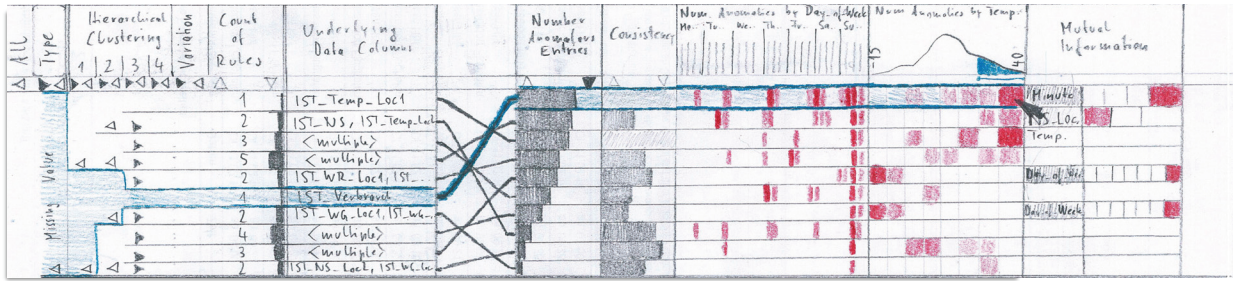 All
Type
Hierarchical
Clustering
1 | 2 | 3 | 4
Variation
Count
of
Rules
Underlying
Data Columns
Number
Anomalous
Entries
Consistency
Num. Anomalies by Day_of_Week
Mo.. Tu.. We.. Th.. Fr.. Sa.. Su..
Num Anomalies by Temp.
-15
40
Mutual
Information
Missing Value
1 IST_Temp_Loc1
2 IST_NS, IST_Temp_Loc
3 <multiple>
5 <multiple>
2 IST_WR_Loc1, IST_...
1 IST_Verbrauch
2 IST_WG_Loc1, IST_WG_..
4 <multiple>
3 <multiple>
2 IST_NS_Loc1, IST_WG_Lo
Minute
NS_Loc.
Temp.
Day_of_We.
Day_of_Week